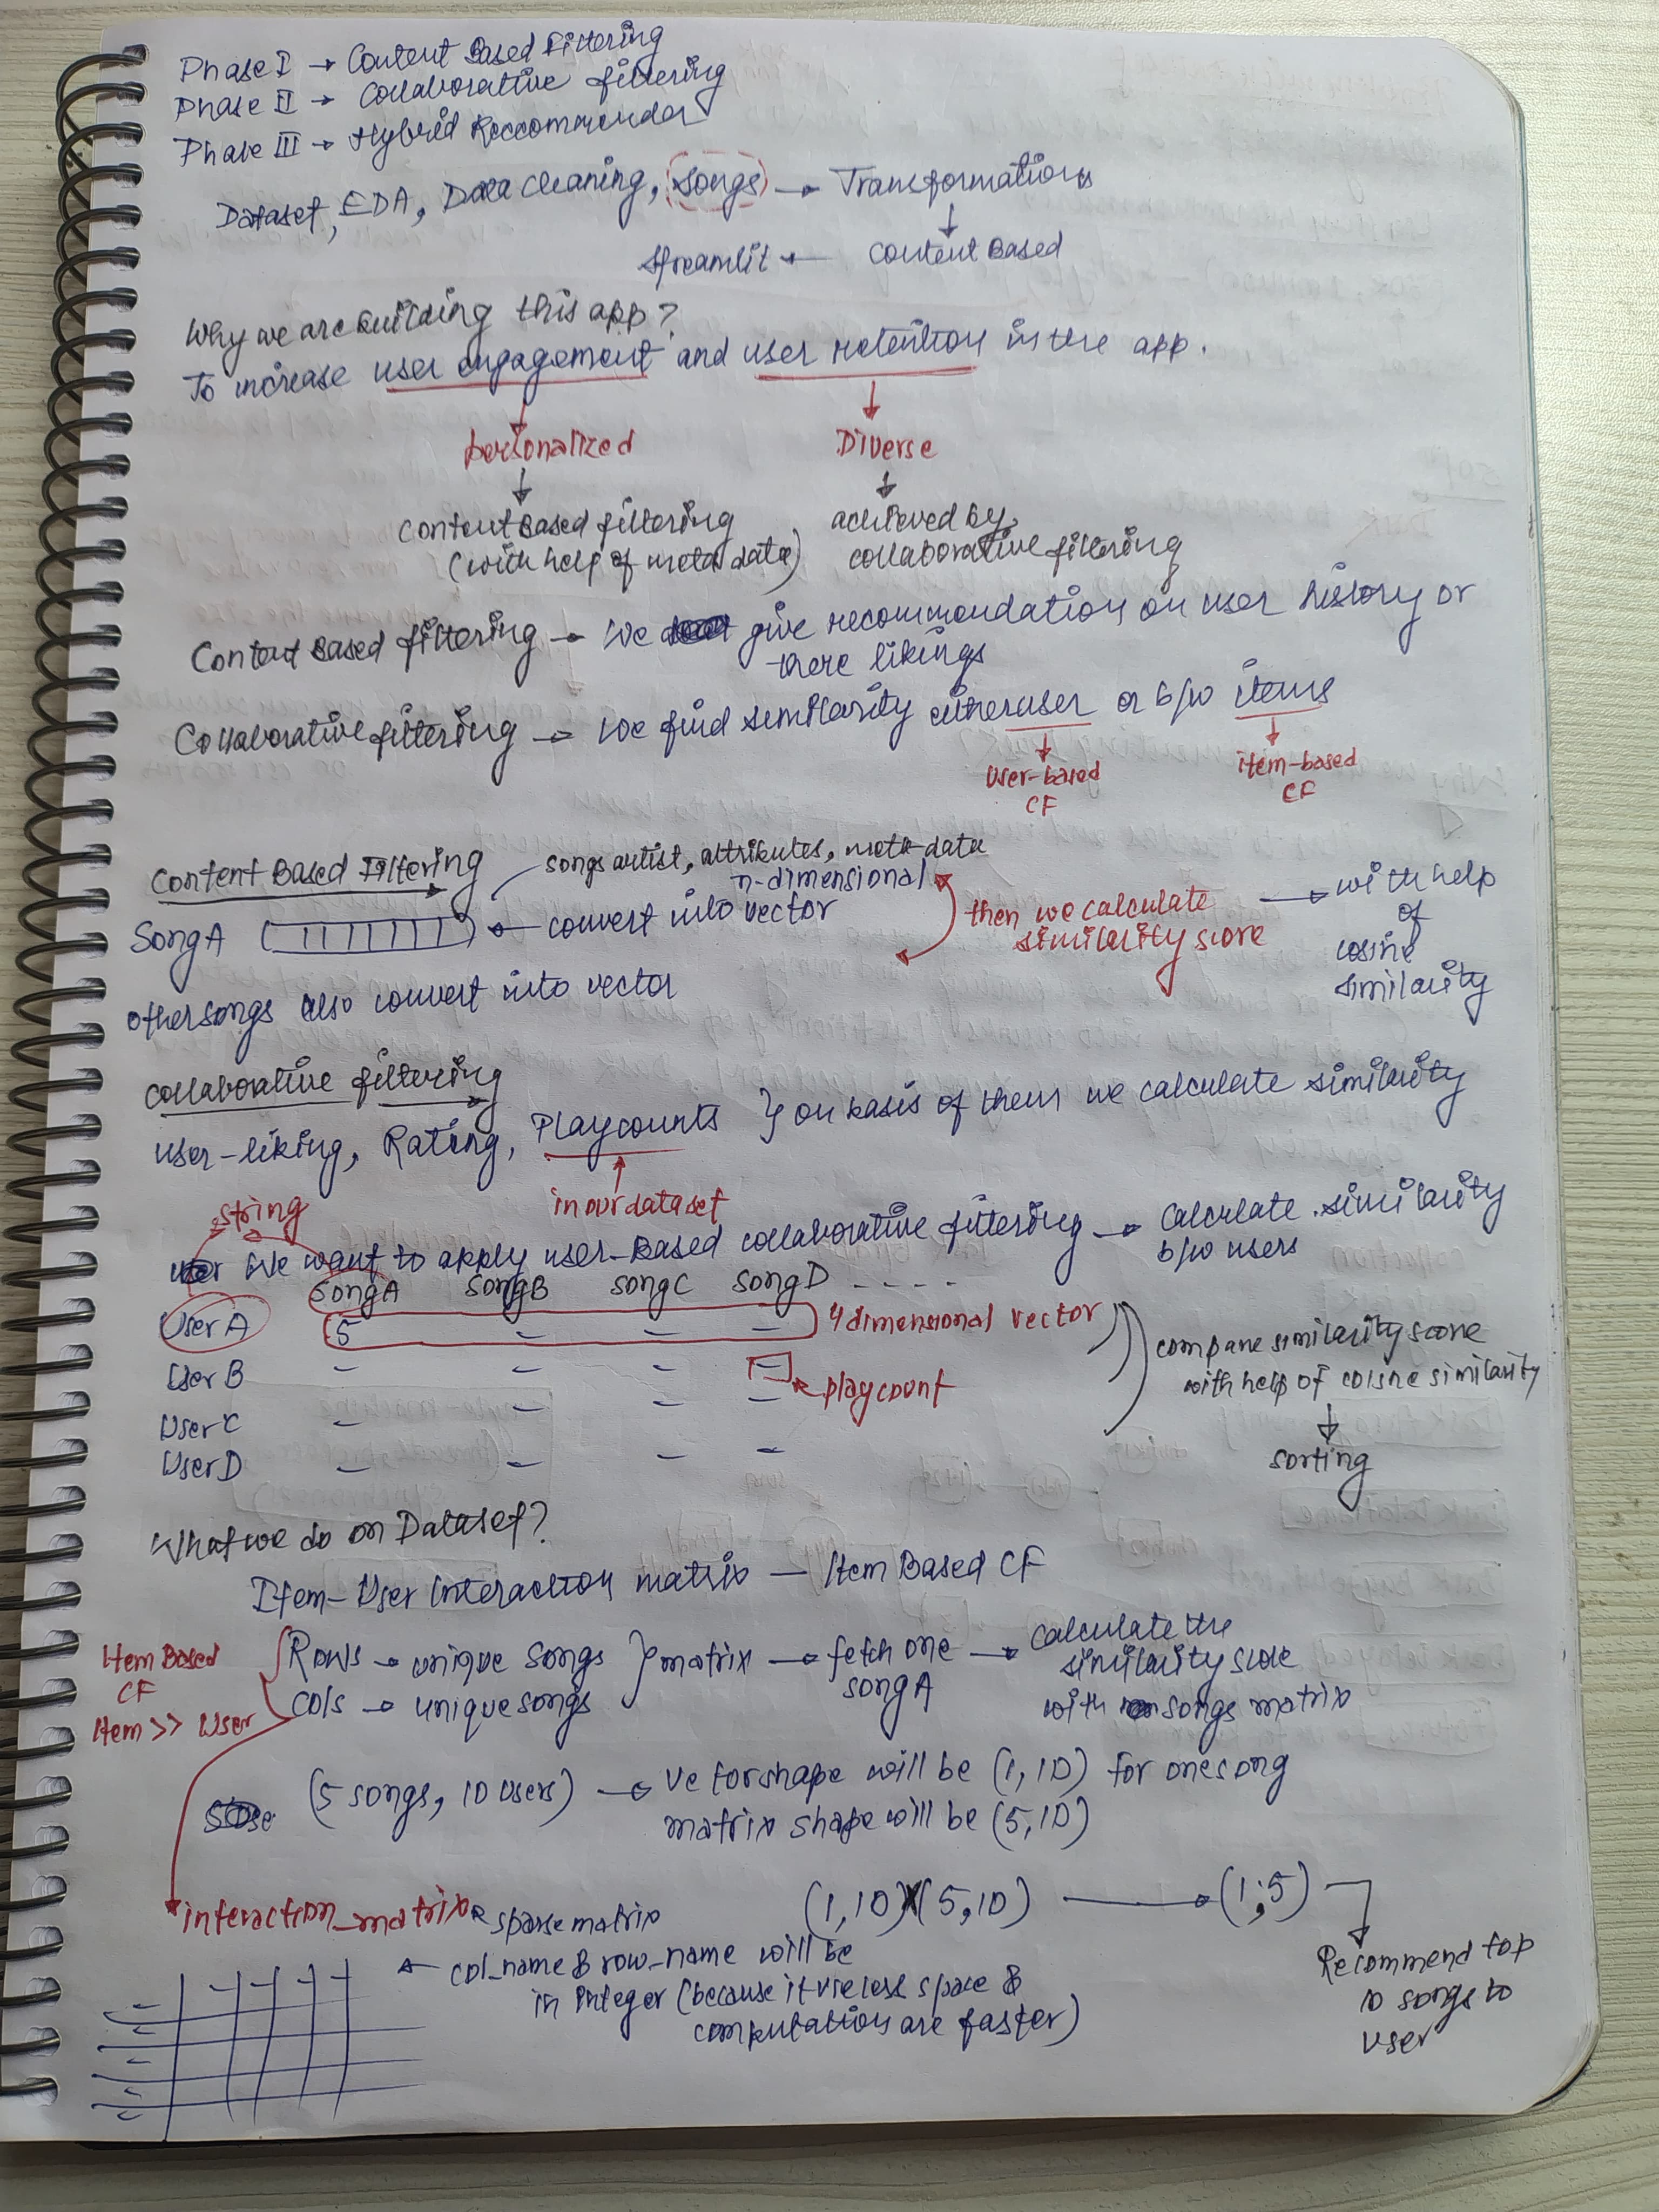 Phase I → Content Based Filtering
Phase II → Collaborative filtering
Phase III → Hybrid Reccommender
Dataset, EDA, Data Cleaning, songs → Transformations
↓
Streamlit ← Content Based
Why we are building this app?
To increase user engagement and user retention in the app.
personalized Diverse
Content Based filtering achieved by
(with help of meta data) collaborative filtering
Content Based filtering → We give recommendation on user history or
there likings
Collaborative filtering → We find similarity either user or b/w items
User-based item-based
CF CF
Content Based Filtering songs artist, attributes, meta-data
n-dimensional
SongA ← convert into vector then we calculate → with help
similarity score of
cosine
similarity
other songs also convert into vector
Collaborative filtering
User-liking, Rating, Playcounts } on basis of them we calculate similarity
in our dataset
string
We want to apply user-Based collaborative filtering → Calculate similarity
b/w users
SongA SongB songC songD - - - -
UserA 5 – – – 4 dimensional vector
UserB – – – –
playcount
compare similarity score
with help of coisne similarity
↓
sorting
UserC – – – –
UserD – – – –
What we do on Dataset?
Item-User Interaction matrix – Item Based CF
Item Based
CF
Item >> User
Rows → unique songs } matrix → fetch one → Calculate the
cols → unique songs songA similarity score
with songs matrix
(5 songs, 10 users) → Vector shape will be (1, 10) for one song
matrix shape will be (5, 10)
(1, 10) X (5, 10) → (1, 5)
interaction_matrix sparse matrix
← col_name & row_name will be
in Integer (because it use less space &
computations are faster)
Recommend top
10 songs to
user